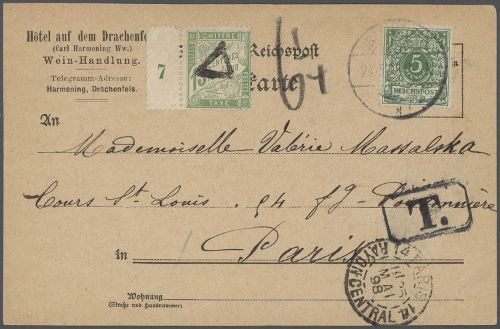 Hôtel auf dem Drachenfels
(Carl Harmening Ww.)
Wein-Handlung.
Telegramm-Adresse:
Harmening, Drachenfels.
7
CHIFFRE
TAXE
Reichspost
karte
5
REICHSPOST
An
Mademoiselle Valérie Massalska
Cours St Louis. 54 fg. Poissonnière
T.
in Paris
PARIS
MAI
98
RAYON CENTRAL
Wohnung
(Straße und Hausnummer)